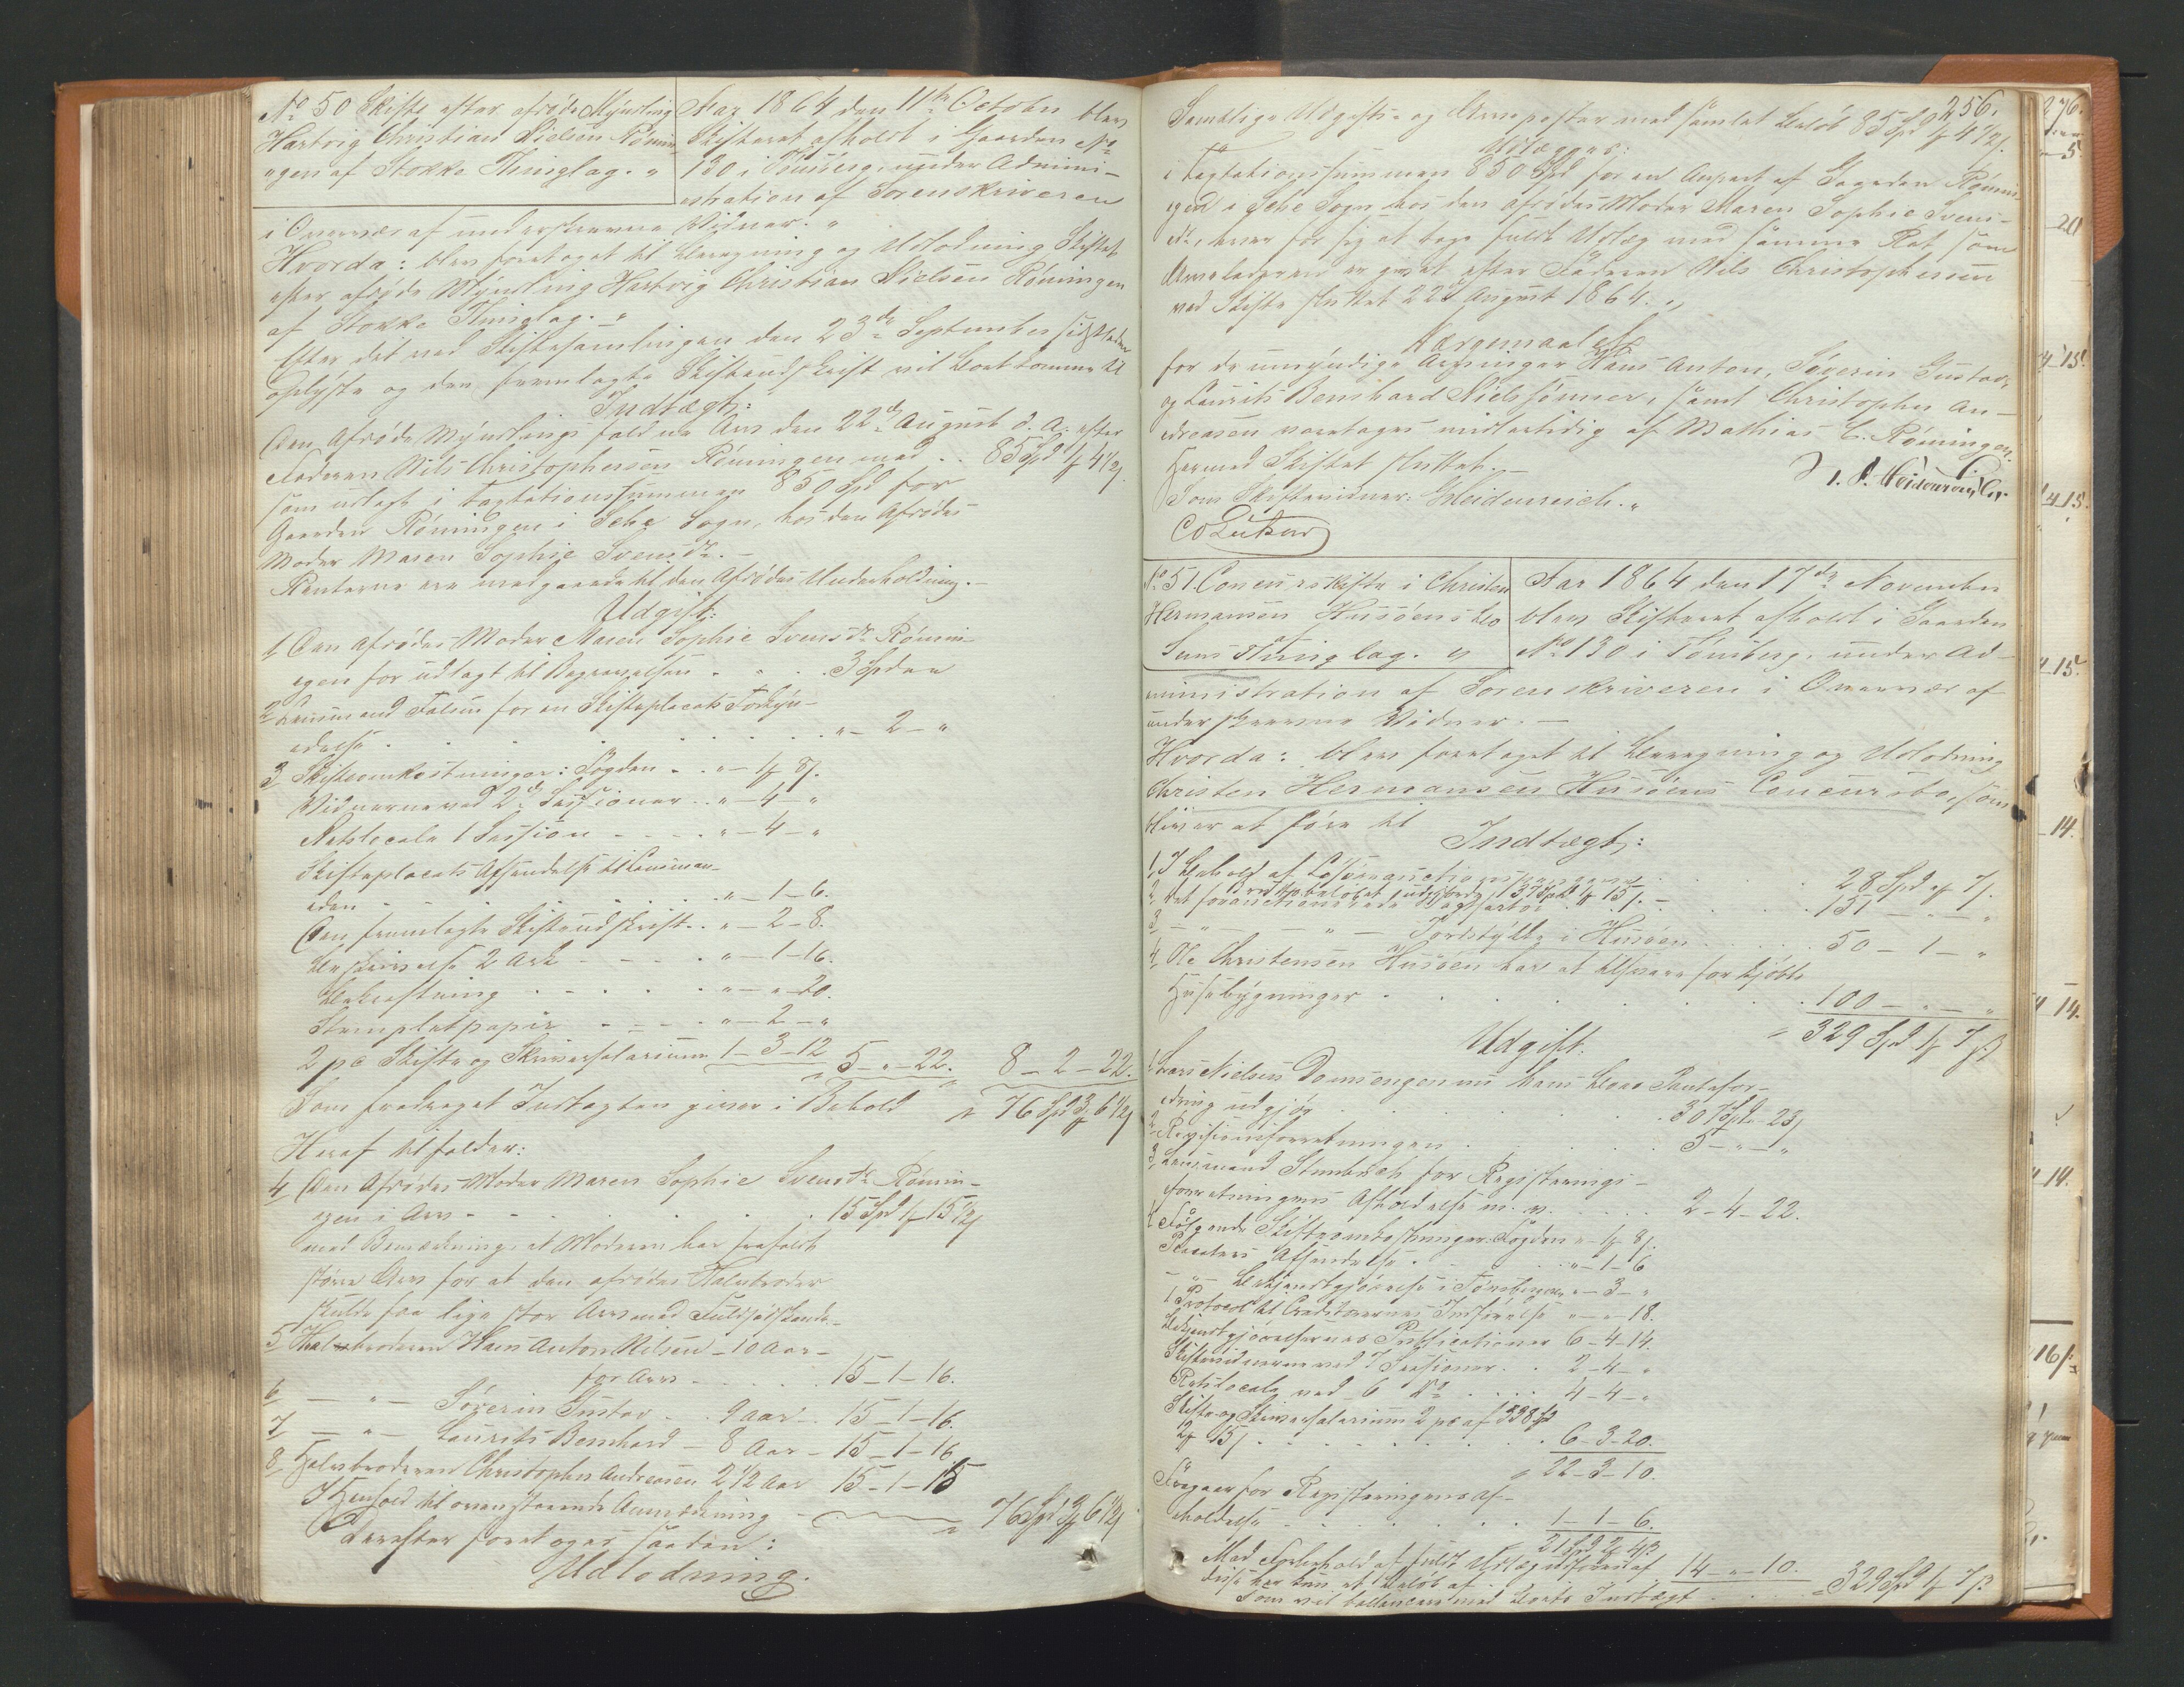 No 50 Skifte efter afdøde Myndling
Hartvig Christian Nielsen Rønnin-
gen af Stokke Thinglag. "
Aar 1864 den 11te October blev
Skifteret afholdt i Gaarden No
130 i Tønsberg, under Admini-
stration af Sorenskriveren
i Overvær af underskrevne Vidner. "
Hvorda: blev foretaget til Beregning og Udlodning Skiftet
efter afdøde Myndling Hartvig Christian Nielsen Rønningen
af Stokke Thinglag. "
Efter det ved Skiftesamlingen den 23de September sidstleden
Oplyste og den fremlagte Skifteudskrift vil Boet komme til
Indtægt:
Den Afdøde Myndlings faldne Arv den 22de August d. A. efter
Faderen Nils Christophersen Rønningen med .. 85 Spd 1 # 4 1/2 ß
som udlagt i Taxtationssummen 850 Spd for
Gaarden Rønningen i Sehe Sogn, hos den Afdødes
Moder Maren Sophie Svensdr. -
Renterne ere medgaaede til den Afdødes Underholdning. -
Udgift:
1 Den Afdødes Moder Maren Sophie Svensdr Rønnin-
gen for udlagt til Begravelsen . . . 3 Spd "
2 Lensmand Falum for en Skifteplacats Forkyn-
delse . . . . " - 2 - "
3 Skifteomkostninger: Fogden . . " - 1 # 8 ß
Vidnerne ved 2de Sessioner . . " - 4 - "
Retslocale 1 Session - - - " - 4 - "
Skifteplacats Afsendelse til Lensman-
den . . . . " - 1 - 6.
Den fremlagte Skifteudskrift . . " - 2 - 8.
Beskrivelse 2 Ark - - - " - 1 - 16.
Bekræftning . . . " - " - 20.
Stemplet papir . . . " - 2 - "
2 pc Skifte og Skriversalarium 1 - 3 - 12 5 - " - 22. 8 - 2 - 22.
Som fradraget Indtægten giver i Behold = 76 Spd 3 # 6 1/2 ß
Heraf tilfalder:
4 Den Afdødes Moder Maren Sophie Svensdr Rønnin-
gen i Arv - . . . 15 Spd 1 # 15 1/2 ß
med Bemærkning, at Moderen har frafaldt
større Arv for at den afdødes Halvbroder
skulde faa lige stor Arv med Fuldsødskende. -
5 Halvbroderen Hans Anton Nilsen - 10 Aar -
for Arv - . . . 15 - 1 - 16.
6 - " - Søverin Gustav . . 9 Aar - 15 - 1 - 16.
7 - " - Laurits Bernhard - 8 Aar - 15 - 1 - 16
8 Halvbroderen Christopher Andreasen 2 1/2 Aar 15 - 1 - 15
I Henhold til ovenstaaende Anmærkning - = 76 Spd 3 # 6 1/2 ß
Derefter foretoges saadan:
Udlodning.
256.
Samtlige Udgifts- og Arveposter med samlet Beløb 85 Spd 1 # 4 1/2 ß
Udlægges:
i Taxtationssummen 850 Spd for en Anpart af Gaarden Rønnin-
gen i Sehe Sogn hos den afdødes Moder Maren Sophie Svens-
dr, hver for sig at tage fuldt Udlæg med samme Ret som
Arveladeren er givet efter Faderen Nils Christophersen
ved Skifte sluttet 22de August 1864. "
Værgemaalet
for de umyndige Arvinger Hans Anton, Søverin Gustav
og Laurits Bernhard Nielssønner, samt Christopher An-
dreasen varetages midlertidig af Mathias C. Rønningen.
Hermed Skiftet sluttet. -
Som Skiftevidner: Heidenreich. "
No 51. Concursskifte i Christen
Hermansen Husøens Bo
af
Sems Thinglag. "
Aar 1864 den 17de November
blev Skifteret afholdt i Gaarden
No 130 i Tønsberg, under Ad-
ministration af Sorenskriveren i Overvær af
underskrevne Vidner. -
Hvorda: blev foretaget til Beregning og Udlodning
Christen Hermansen Husøens Concursbo, som
bliver at føre til
Indtægt:
1, I Behold af Løsøreauctionspengene . . . . 28 Spd " # 7 ß
Bruttobeløbet udgjorde 137 Spd 1 # 15 ß. -
2 Det forauctionerede . . . . 151 - " - "
3 - " - - " - Jordstykke i Husøen . . . . 50 - 1 - "
4 Ole Christensen Husøen har at tilsvare for kjøbte
Husebygninger . . . . 100 - " - "
= 329 Spd 1 # 7 ß
Udgift.
1 Lars Nielsen Domsengen nu hans Boes Pantefor-
dring udgjør . . . . 307 Spd " - 23 ß
2 Revisionsforretningen . . . . 5 - " - "
3 Lensmand Stenbach for Registrerings-
forretningens Afholdelse m. v. . . . 2 - 4 - 22.
4 Følgende Skifteomkostninger: Fogden " - 1 # 8 ß.
Placaters Afsendelse . . . " - 1 - 6
- " - Bekjendtgjørelse i Tønsberg " - 3 - "
1 Protocol til Creditorernes Indførelse " - " - 18.
Bekjendtgjørelsernes Publicationer 6 - 4 - 14.
Skiftevidnerne ved 7 Sessioner . . 2 - 4 - "
Retslocale ved 6 do . . . 4 - 4 - "
Skifte- og Skriversalarium 2 pc af 338 Spd
2 # 15 ß . . . . 6 - 3 - 20.
= 22 - 3 - 10.
Fragaaer for Registreringens af-
holdelse . . . . 1 - 1 - 6.
21 Spd 2 # 4 ß
Med Forbehold af fuldt Udlæg udføres af
disse her kun et Beløb af . . . 14 - " - 10.
Som vil ballancere med Boets Indtægt . . . = 329 Spd 1 # 7 ß